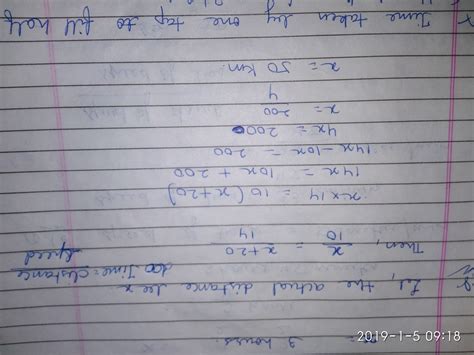 3 hours.
Let, the actual distance be x
Time = distance
speed
Then,
x/10 = x+20/14
x×14 = 10(x+20)
14x = 10x + 200
14x-10x = 200
4x = 200
x = 200
4
x = 50 km.
Time taken by one tap to fill half
2019-1-5 09:18